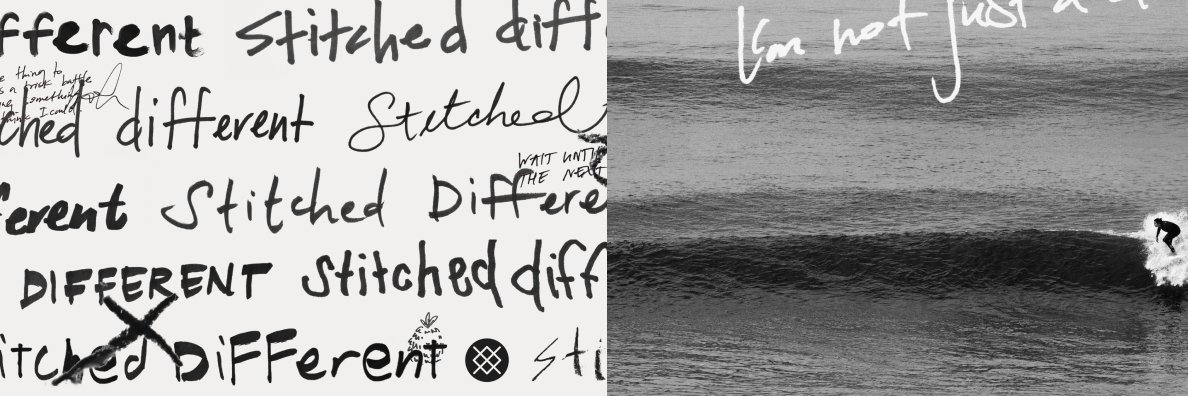 fferent Stitched diff
e thing to
s a brick battle
something
think I could
ched different Stitched
WAIT UNTI
THE NEXT
ferent Stitched Differe
DIFFERENT Stitched diff
itched DiFFerent Sti
I'm not just a